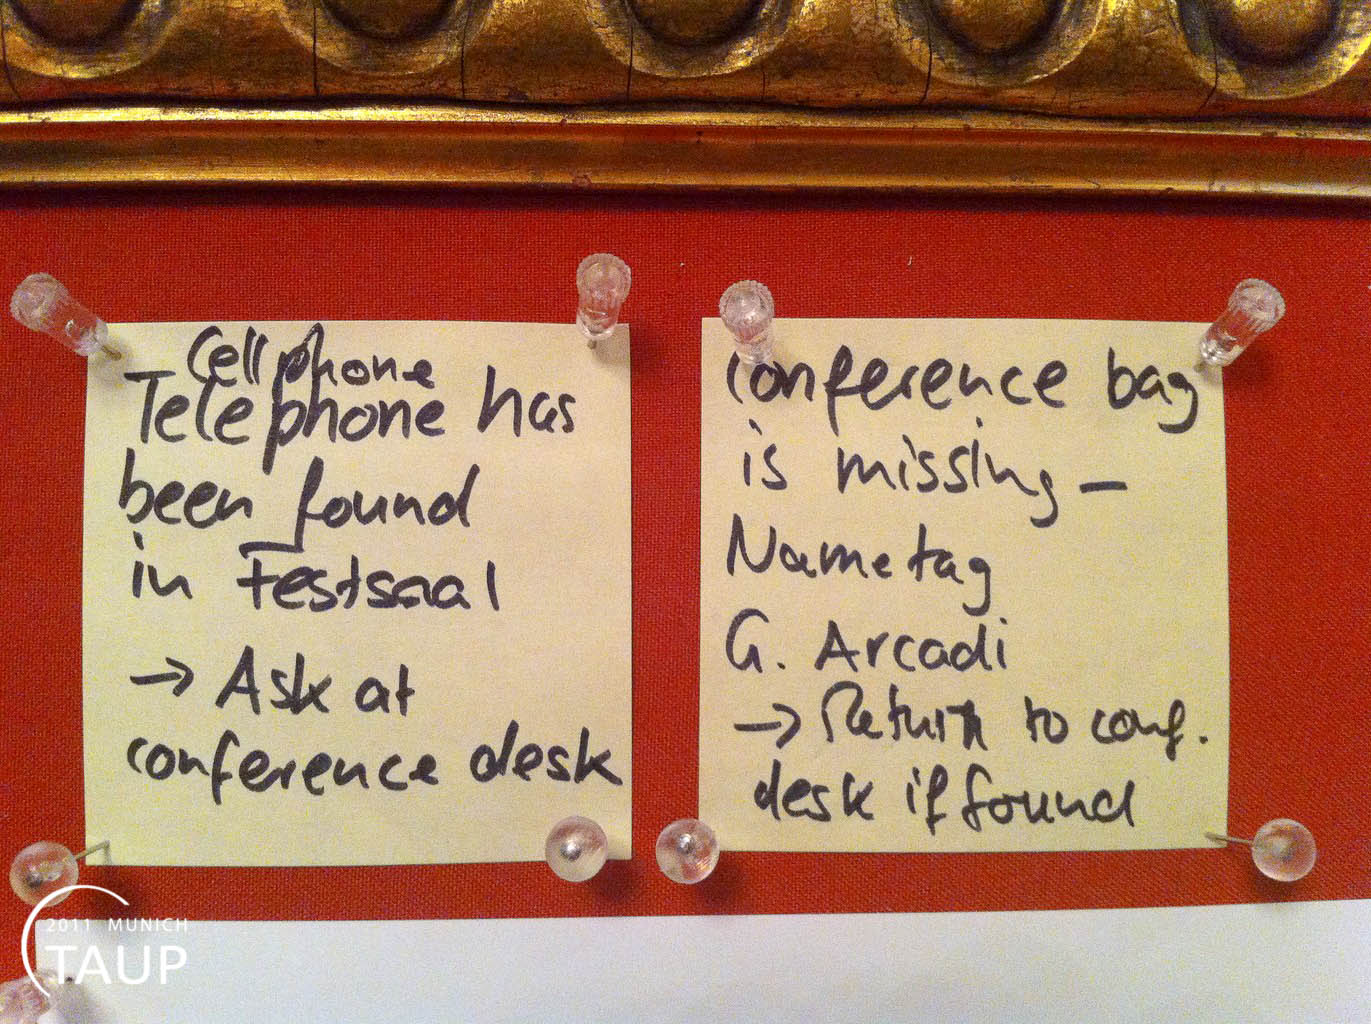 Cellphone
Telephone has
been found
in Festsaal
→ Ask at
conference desk
Conference bag
is missing –
Nametag
G. Arcadi
→ Return to conf.
desk if found
2011 MUNICH
TAUP